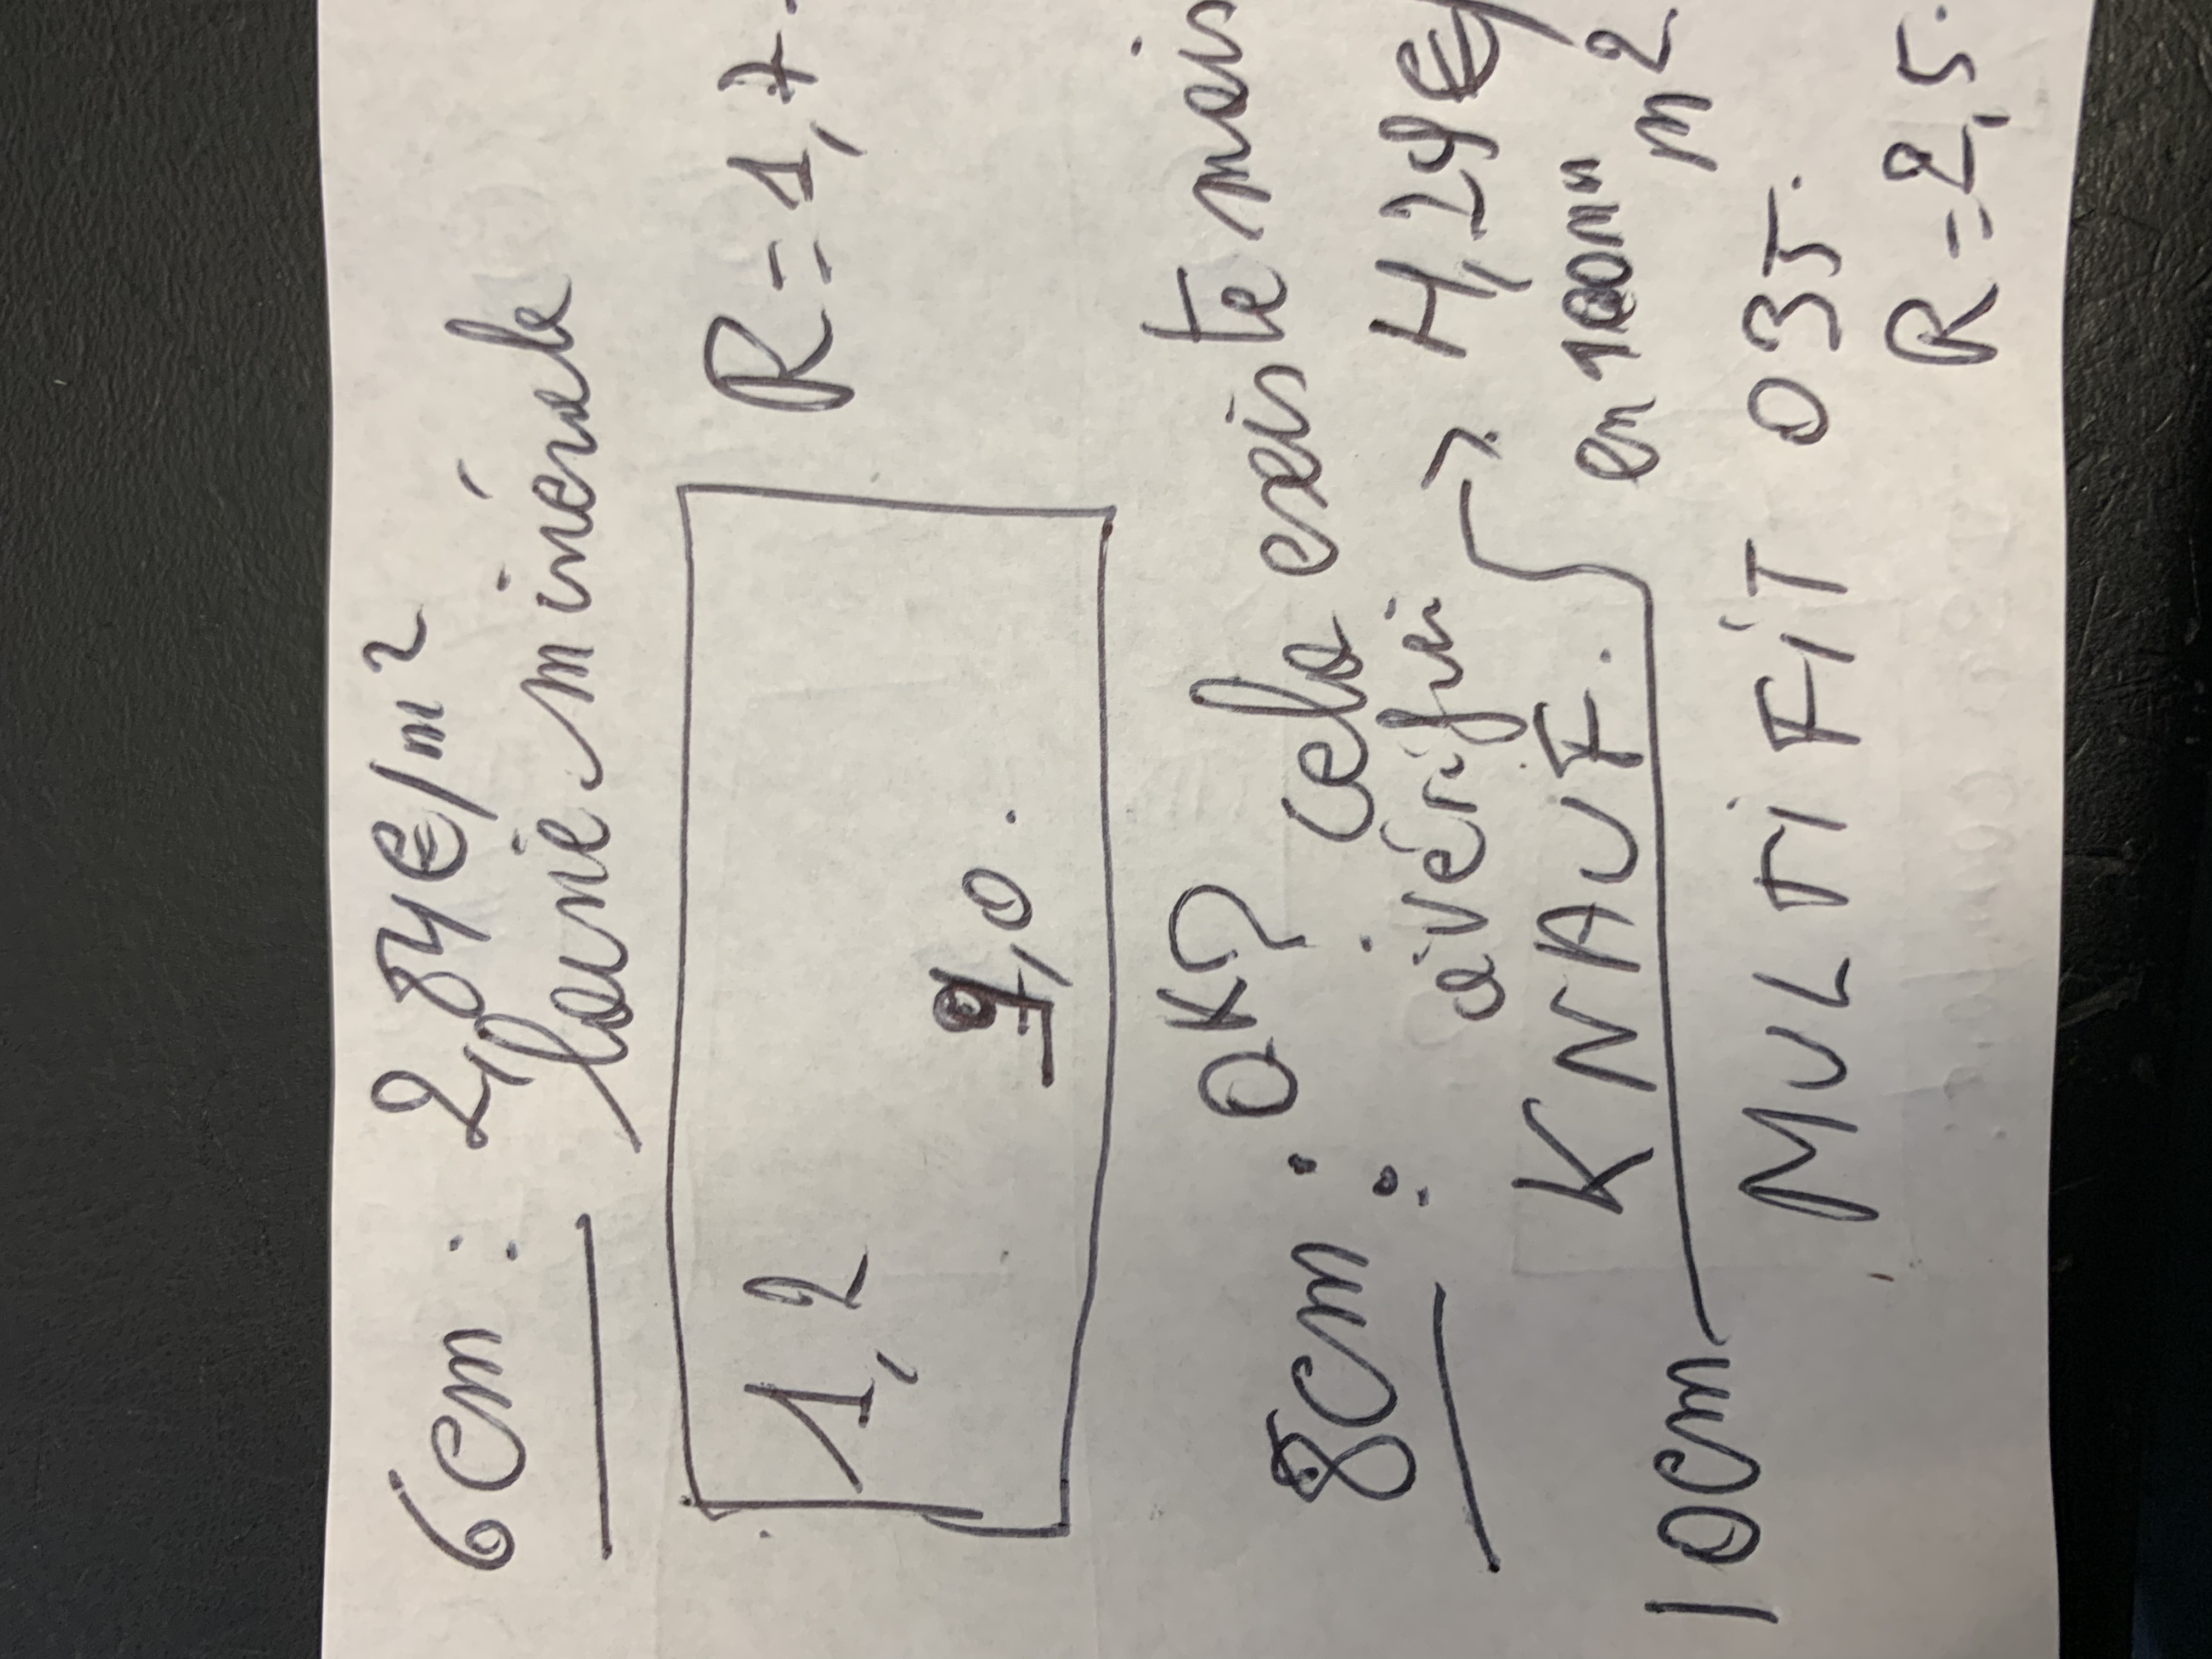 6 cm : 2,84€/m²
laine minérale
1,2 R=1,7.
9,0.
8cm : OK? cela existe mais
à vérifier
→ 4,29€/m²
KNAUF. en 100mm
10cm MULTIFIT 035.
R=2,5.